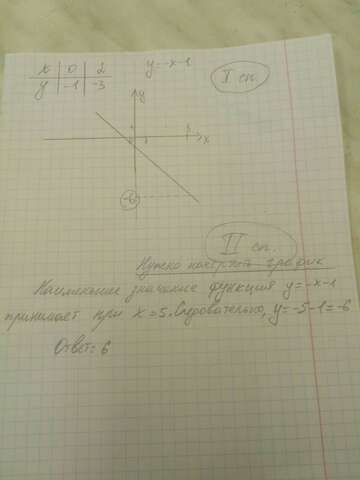 x | 0 | 2
y | -1 | -3
y = -x-1
I сп.
y
x
-6
II сп.
Нужно построить график
Наименьшее значение функция y = -x-1
принимает при x = 5. Следовательно, y = -5-1 = -6
Ответ: 6